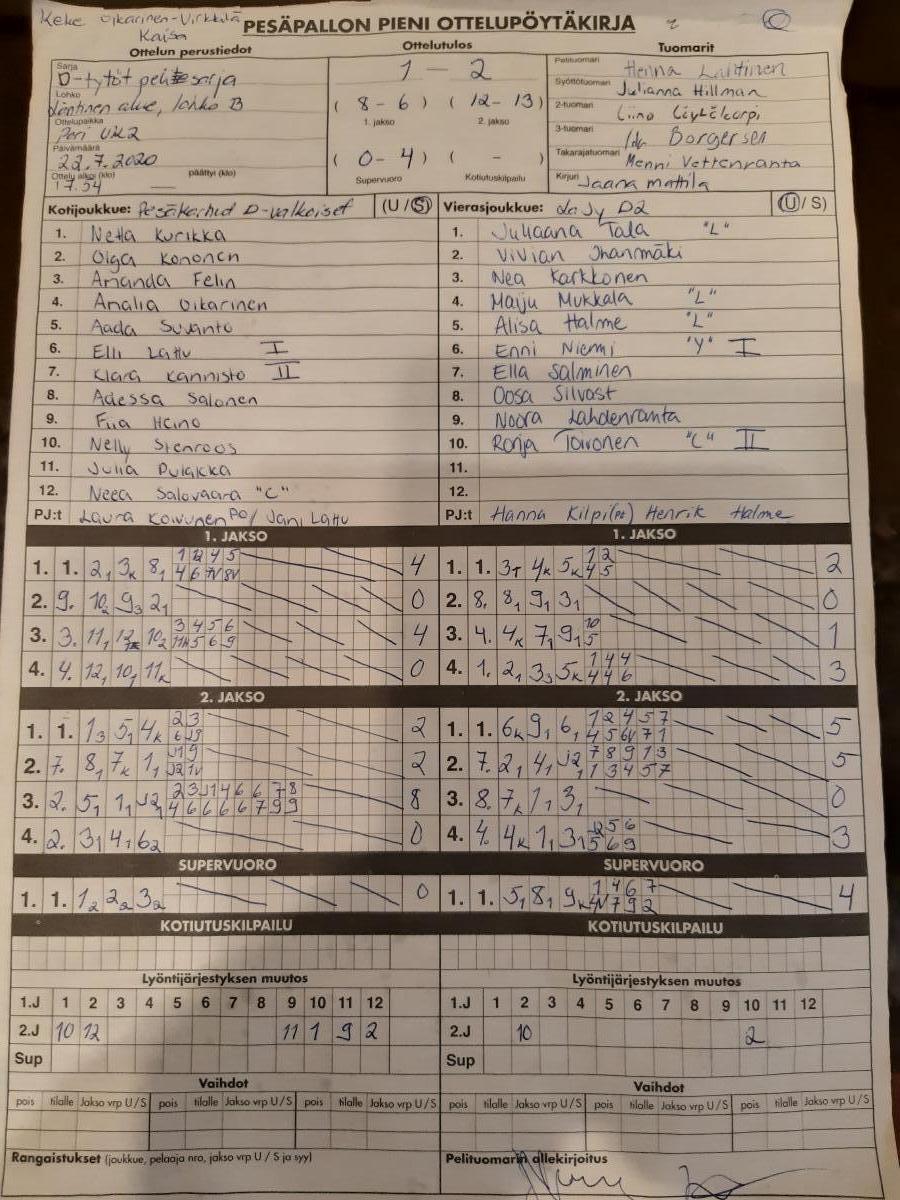 Keke Oikarinen-Virkkilä
Kaisa
PESÄPALLON PIENI OTTELUPÖYTÄKIRJA
Ottelun perustiedot
Ottelutulos
Tuomarit
Sarja
D-tytöt pelitesarja
Lohko
Läntinen alue, lohko B
Ottelupaikka
Pori UK2
Päivämäärä
22.7.2020
Ottelu alkoi (klo) päättyi (klo)
17.54 —
1 — 2
( 8 - 6 ) ( 12 - 13 )
1. jakso 2. jakso
( 0 - 4 ) ( - )
Supervuoro Kotiutuskilpailu
Pelituomari Henna Laitinen
Syöttötuomari Julianna Hillman
2-tuomari Liina
3-tuomari Ida Borgersen
Takarajatuomari Menni Vettenranta
Kirjuri Jaana Mattila
Kotijoukkue: Pesäkarhut D-valkoiset (U / S)
1. Netta Kurikka
2. Olga Kononen
3. Amanda Felin
4. Amalia Oikarinen
5. Aada Suvanto
6. Elli Lattu I
7. Klara Kannisto II
8. Adessa Salonen
9. Fiia Heino
10. Nelly Stenroos
11. Julia Pulakka
12. Neea Salovaara "C"
PJ:t Laura Koivunen PO/ Jani Lattu
Vierasjoukkue: LaJy D2 (U / S)
1. Juliaana Tala "L"
2. Vivian Ihanmäki
3. Nea Karkkonen
4. Maiju Mukkala "L"
5. Alisa Halme "L"
6. Enni Niemi "Y" I
7. Ella Salminen
8. Oosa Silvast
9. Noora Lahdenranta
10. Ronja Toivonen "C" II
11.
12.
PJ:t Hanna Kilpi(pt) Henrik Halme
1. JAKSO
1. 1. 2₁ 3ₖ 8₁ 4
2. 9. 10₂ 9₃ 2₁ 0
3. 3. 11₁ 10₂ 3 4 5 6 4
4. 4. 12₁ 10₁ 11ₖ 0
1. JAKSO
1. 1. 3т 4ₖ 5ₖ 1 2 4 5 2
2. 8. 8₁ 9₁ 3₁ 0
3. 4. 4ₖ 7₁ 9₁ 10 5 1
4. 1. 2₁ 3₃ 5ₖ 1 4 4 4 4 6 3
2. JAKSO
1. 1. 1₃ 5₁ 4ₖ 2 3 2
2. 7. 8₁ 7ₖ 1₁ 2
3. 2. 5₁ 1₁ J2₁ 2 3 J1 4 6 6 7 8 4 6 6 6 6 7 9 9 8
4. 2. 3₁ 4₁ 6₂ 0
2. JAKSO
1. 1. 6ₖ 9₁ 6₁ 1 2 4 5 7 4 5 6V 7 1 5
2. 7. 2₁ 4₁ J2₁ 7 8 9 1 3 1 3 4 5 7 5
3. 8. 7ₖ 1₁ 3₁ 0
4. 4. 4ₖ 1₁ 3₁ 5 6 5 6 9 3
SUPERVUORO
1. 1. 1₂ 2₂ 3₂ 0
SUPERVUORO
1. 1. 5₁ 8₁ 9ₖ 1 4 6 7 4V 7 9 2 4
KOTIUTUSKILPAILU
KOTIUTUSKILPAILU
Lyöntijärjestyksen muutos
1.J 1 2 3 4 5 6 7 8 9 10 11 12
2.J 10 12 11 1 9 2
Sup
Lyöntijärjestyksen muutos
1.J 1 2 3 4 5 6 7 8 9 10 11 12
2.J 10 2
Sup
Vaihdot
pois tilalle Jakso vrp U / S pois tilalle Jakso vrp U / S pois tilalle Jakso vrp U / S
Vaihdot
pois tilalle Jakso vrp U / S pois tilalle Jakso vrp U / S pois tilalle Jakso vrp U / S
Rangaistukset (joukkue, pelaaja nro, jakso vrp U / S ja syy)
Pelituomarin allekirjoitus